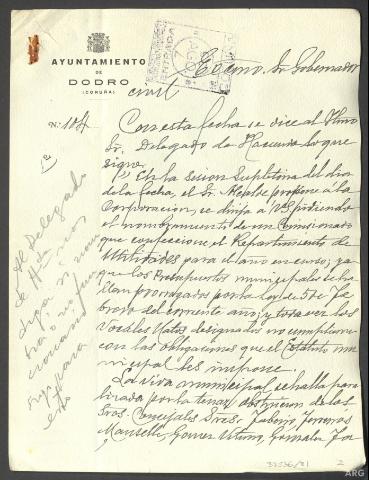 AYUNTAMIENTO
DE
DODRO
(CORUÑA)
Excmo. Sr. Gobernador
civil
N.º 104
Con esta fecha se dice al Iltmo
Sr. Delegado de Hacienda lo que
sigue:
En la sesión supletoria del dia
de la fecha, el Sr. Alcalde propone a la
Corporación, se dirija a V.S. pidiendo
el nombramiento de un Comisionado
que confeccione el Repartimiento de
Utilidades para el año en curso; ya
que los Presupuestos municipales se ha-
llan prorrogados por la ley de 5 de Fe-
brero del corriente año; y toda vez los
Vocales Natos designados no cumplieron
con las obligaciones que el Estatuto mu-
nicipal les impone.
La vida municipal, se halla para-
lizada por la tenaz obstrucción de los
Sres. Concejales Sres.
Gomez
Al Delegado
de Hª
diga
para
ARG